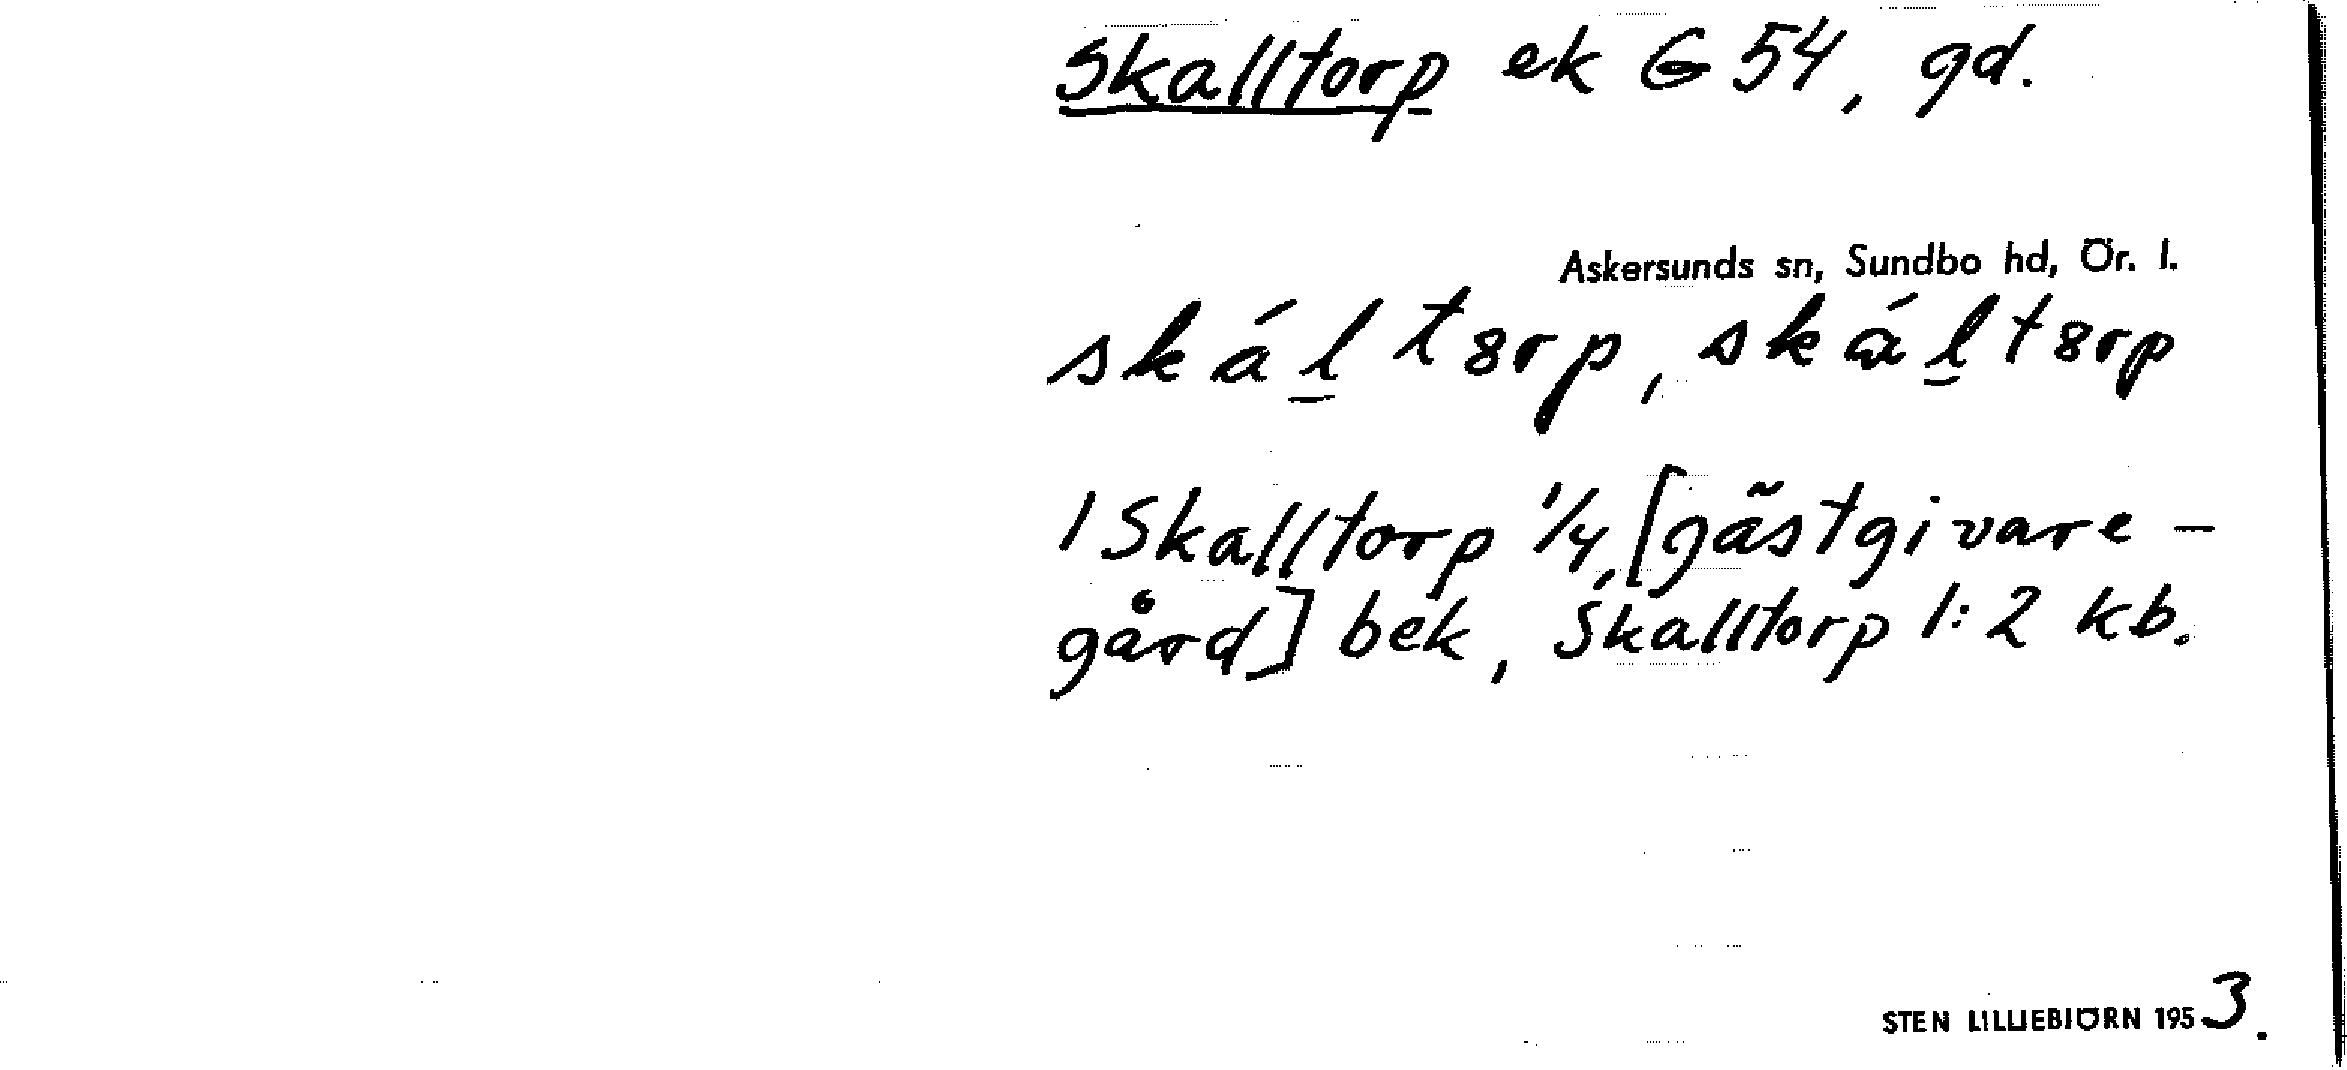 Skalltorp ek G 54, gd.
Askersunds sn, Sundbo hd, Ör. l.
skál̲t8rp, skál̲t8rp
1 Skalltorp 1/4, [gästgivare-
gård] bek, Skalltorp 1:2 kb.
STEN LILLIEBJÖRN 1953.